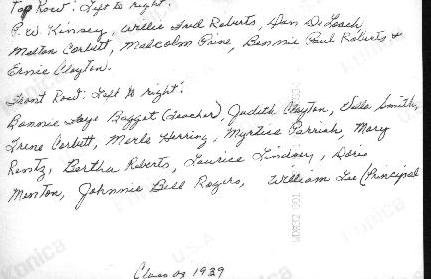 Top Row: Left to right.
P.W. Kinsey, Willie Fred Roberts, Dan DeLoach,
Melton Corbitt, Malcolm Pine, Bennie Paul Roberts &
Ernie Clayton.
Front Row: Left to right:
Bonnie Faye Baggett (Teacher), Judith Clayton, Della Smith,
Irene Corbitt, Merle Herring, Myrtice Parrish, Mary
Rentz, Bertha Roberts, Laurice Lindsey, Doris
Minton, Johnnie Bell Rogers, William Lee (Principal
Class of 1939